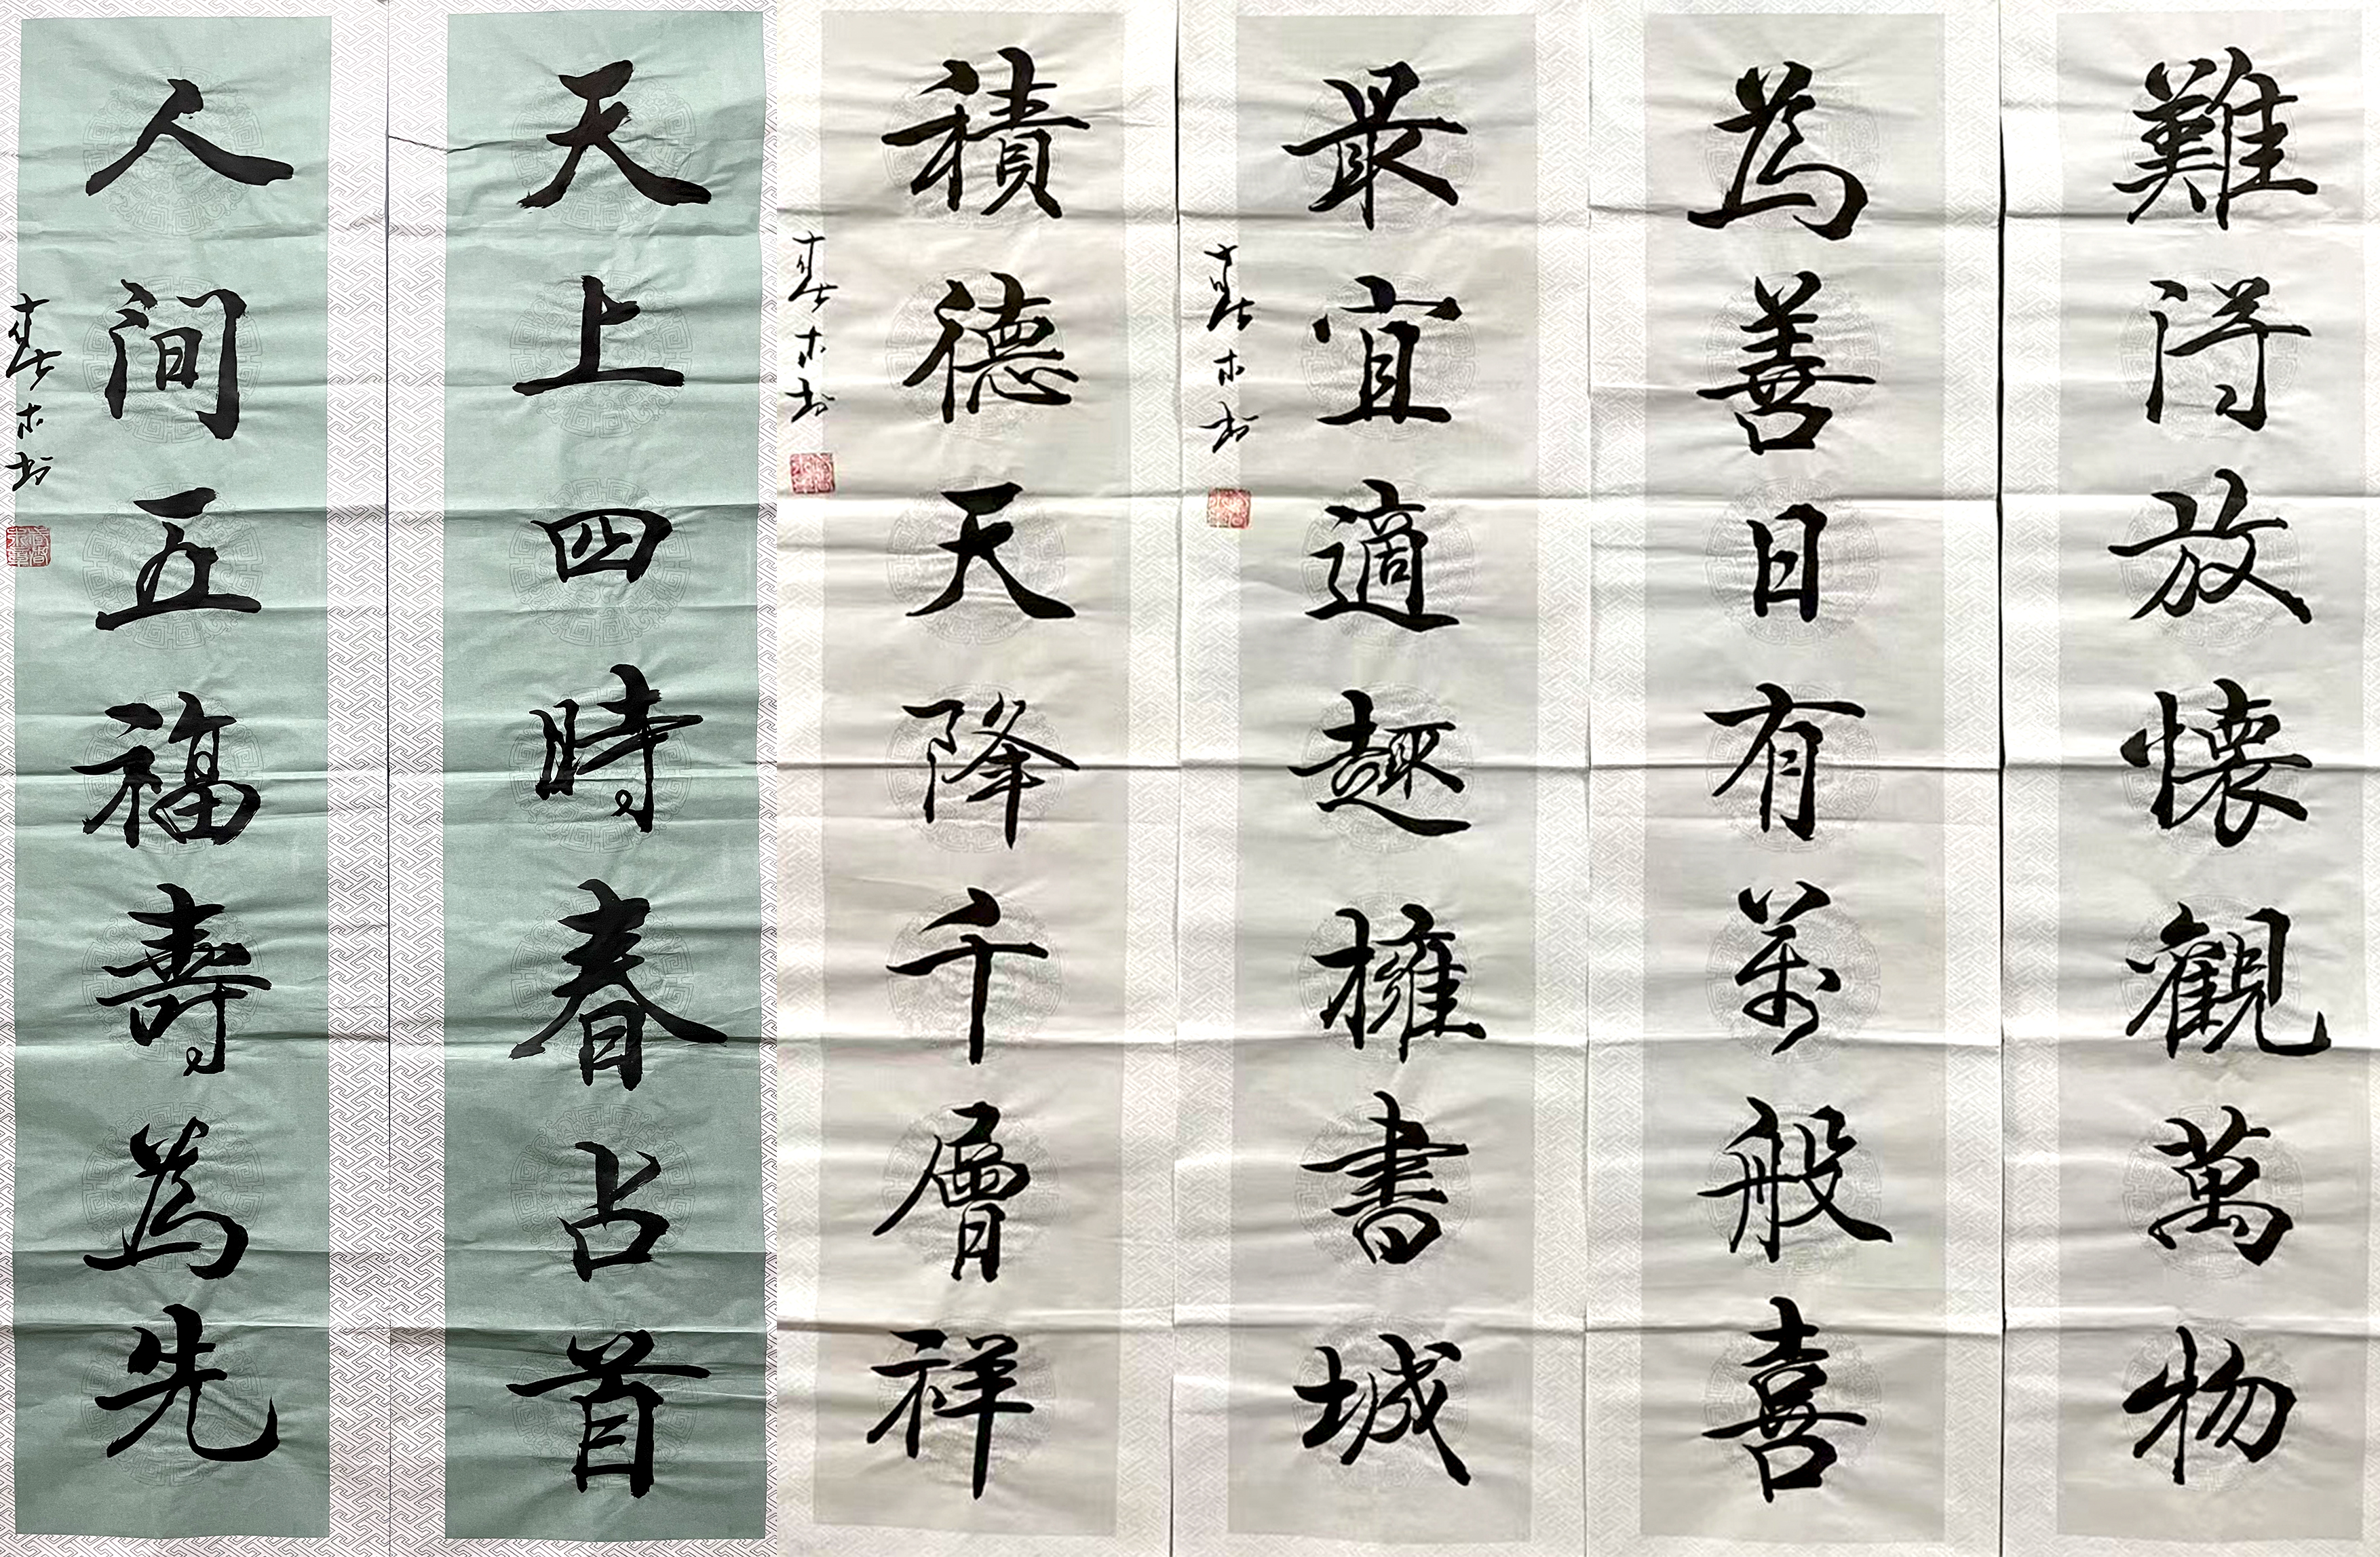 難得放懷觀萬物
為善日有萬般喜
最宜適趣擁書城
春木书
積德天降千層祥
春木书
天上四時春占首
人间五福壽為先
春木书